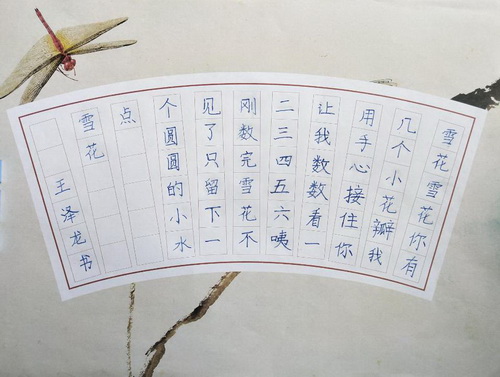 雪花雪花你有
几个小花瓣我
用手心接住你
让我数数看一
二三四五六咦
刚数完雪花不
见了只留下一
个圆圆的小水
点
雪花
王泽龙书